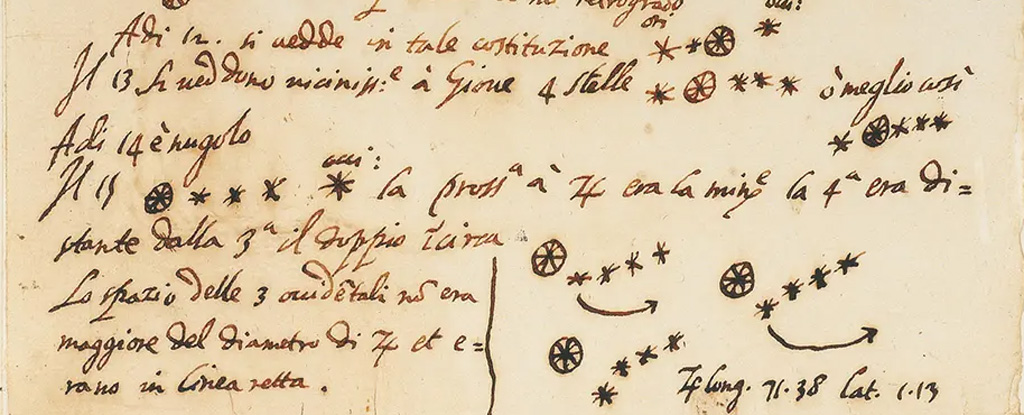 no retrogrado
ori: occi:
Adi 12. si vedde in tale costituzione
Il 13 si veddono viciniss:e à Giove 4 stelle ò meglio così
Adi 14 è nugolo
occi:
Il 15 la prossa à ♃ era la mine la 4a era di=
stante dalla 3a il doppio ĩ circa
Lo spazio delle 3 occidẽtali nõ era
maggiore del diametro di ♃ et e=
rano in linea retta.
♃ long. 71.38 lat. 1.13